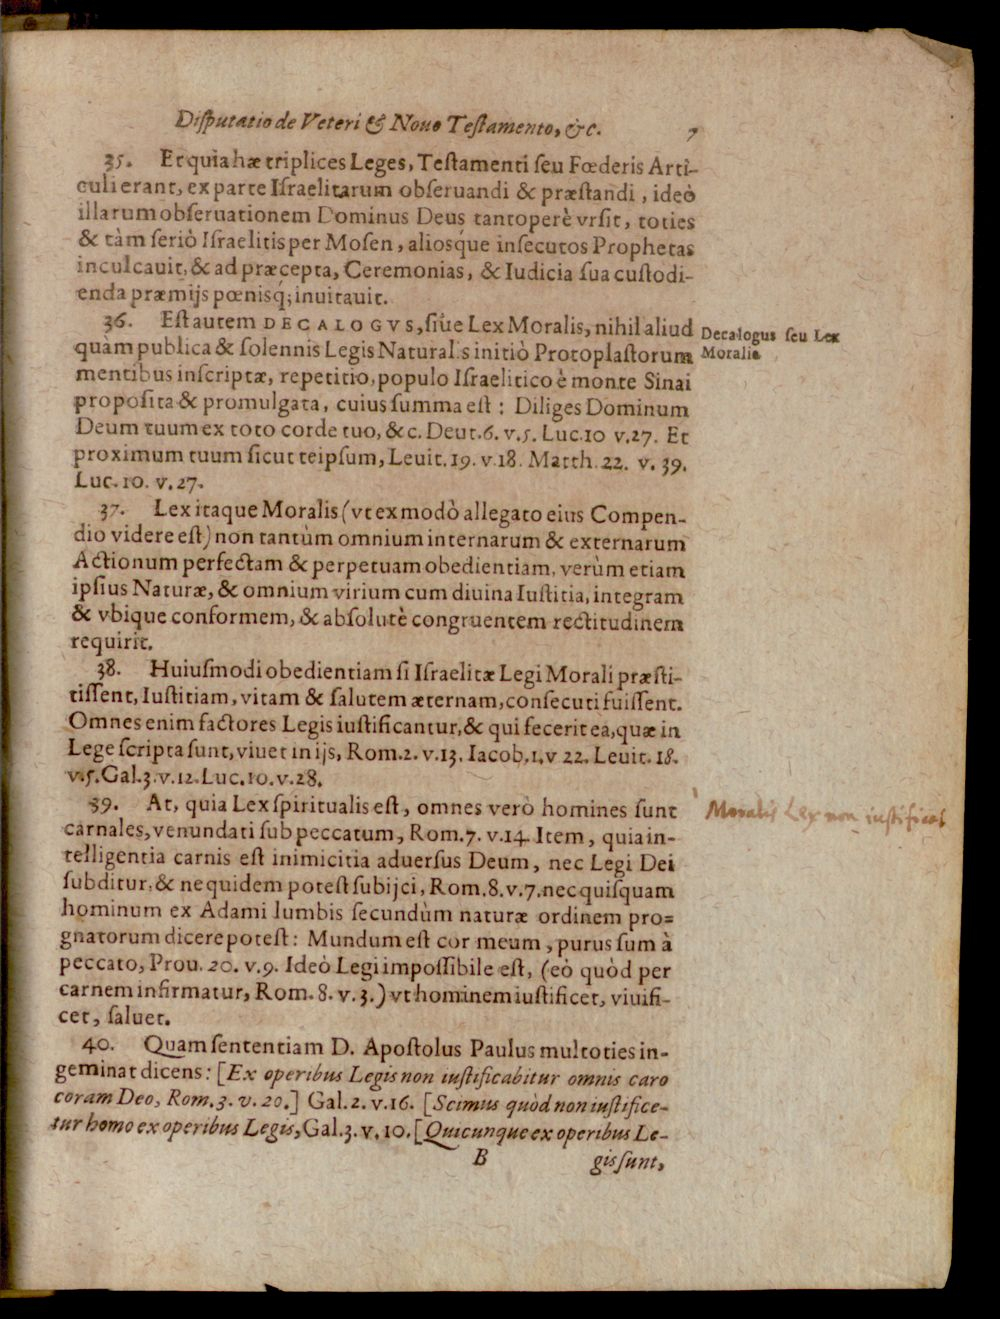 Disputatio de Veteri & Nouo Testamento, &c. 7
35. Et quia hæ triplices Leges, Testamenti seu Fœderis Arti-
culi erant, ex parte Israelitarum obseruandi & præstandi, ideò
illarum obseruationem Dominus Deus tantoperè vrsit, toties
& tàm seriò Israelitis per Mosen, aliosq́ue insecutos Prophetas
inculcauit, & ad præcepta, Ceremonias, & Iudicia sua custodi-
enda præmijs pœnisq́; inuitauit.
36. Est autem DECALOGVS, siue Lex Moralis, nihil aliud
Decalogus seu Lex
Moralis
quàm publica & solennis Legis Naturalis initiò Protoplastorum
mentibus inscriptæ, repetitio, populo Israelitico è monte Sinai
proposita & promulgata, cuius summa est: Diliges Dominum
Deum tuum ex toto corde tuo, &c. Deut. 6. v. 5. Luc. 10 v. 27. Et
proximum tuum sicut teipsum, Leuit. 19. v. 18. Matth. 22. v. 39.
Luc. 10. v. 27.
37. Lex itaque Moralis (vt ex modò allegato eius Compen-
dio videre est) non tantùm omnium internarum & externarum
Actionum perfectam & perpetuam obedientiam, verùm etiam
ipsius Naturæ, & omnium virium cum diuina Iustitia, integram
& vbique conformem, & absolutè congruentem rectitudinem
requirit.
38. Huiusmodi obedientiam si Israelitæ Legi Morali præsti-
tissent, Iustitiam, vitam & salutem æternam, consecuti fuissent.
Omnes enim factores Legis iustificantur, & qui fecerit ea, quæ in
Lege scripta sunt, viuet in ijs, Rom. 2. v. 13. Iacob. 1. v 22. Leuit. 18.
v. 5. Gal. 3. v. 12. Luc. 10. v. 28.
39. At, quia Lex spiritualis est, omnes verò homines sunt
Moralis Lex non iustificat
carnales, venundati sub peccatum, Rom. 7. v. 14. Item, quia in-
telligentia carnis est inimicitia aduersus Deum, nec Legi Dei
subditur, & ne quidem potest subijci, Rom. 8. v. 7. nec quisquam
hominum ex Adami lumbis secundùm naturæ ordinem pro=
gnatorum dicere potest: Mundum est cor meum, purus sum à
peccato, Prou. 20. v. 9. Ideò Legi impossibile est, (eò quòd per
carnem infirmatur, Rom. 8. v. 3.) vt hominem iustificet, viuifi-
cet, saluet.
40. Quam sententiam D. Apostolus Paulus multoties in-
geminat dicens: [Ex operibus Legis non iustificabitur omnis caro
coram Deo, Rom. 3. v. 20.] Gal. 2. v. 16. [Scimus quòd non iustifice-
tur homo ex operibus Legis, Gal. 3. v. 10. [Quicunque ex operibus Le-
B gis sunt,